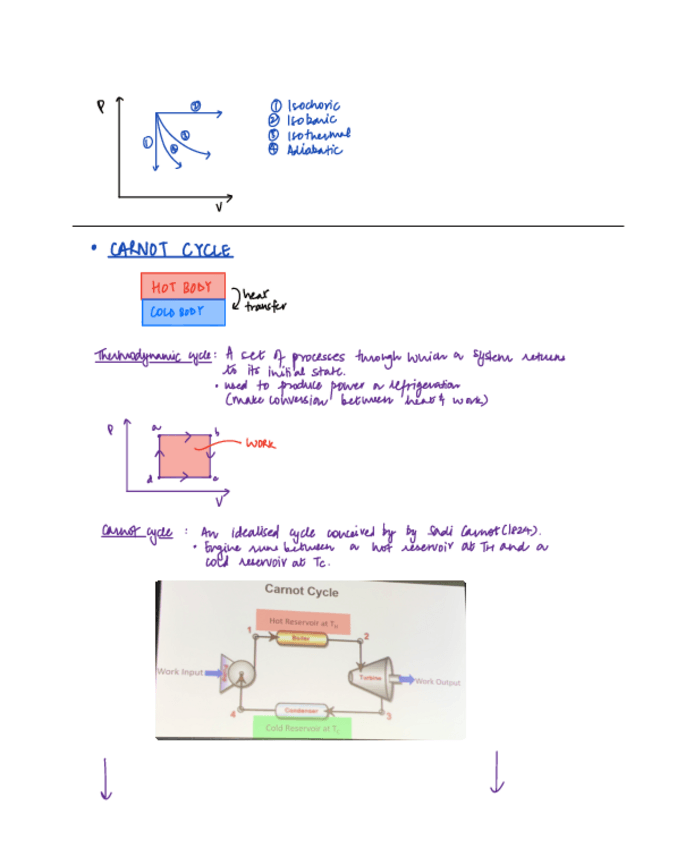 P
②
①
③
④
V
① Isochoric
② Isobaric
③ Isothermal
④ Adiabatic
• CARNOT CYCLE
HOT BODY
COLD BODY
heat
transfer
Thermodynamic cycle: A set of processes through which a system returns
to its initial state.
• used to produce power or refrigeration
(make conversion between heat & work)
P
a
b
WORK
d
c
V
Carnot cycle : An idealised cycle conceived by by Sadi Carnot (1824).
• Engine runs between a hot reservoir at TH and a
cold reservoir at Tc.
Carnot Cycle
Hot Reservoir at TH
1
Boiler
2
Work Input
Turbine
Work Output
4
Condenser
3
Cold Reservoir at